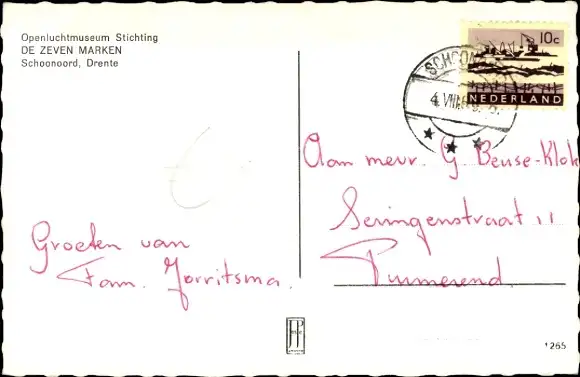 Openluchtmuseum Stichting
DE ZEVEN MARKEN
Schoonoord, Drente
10c
NEDERLAND
4 VIII
Aan mevr. G. Beuse-Klok
Seringenstraat 11
Purmerend.
Groeten van
Fam. Jorritsma.
1265